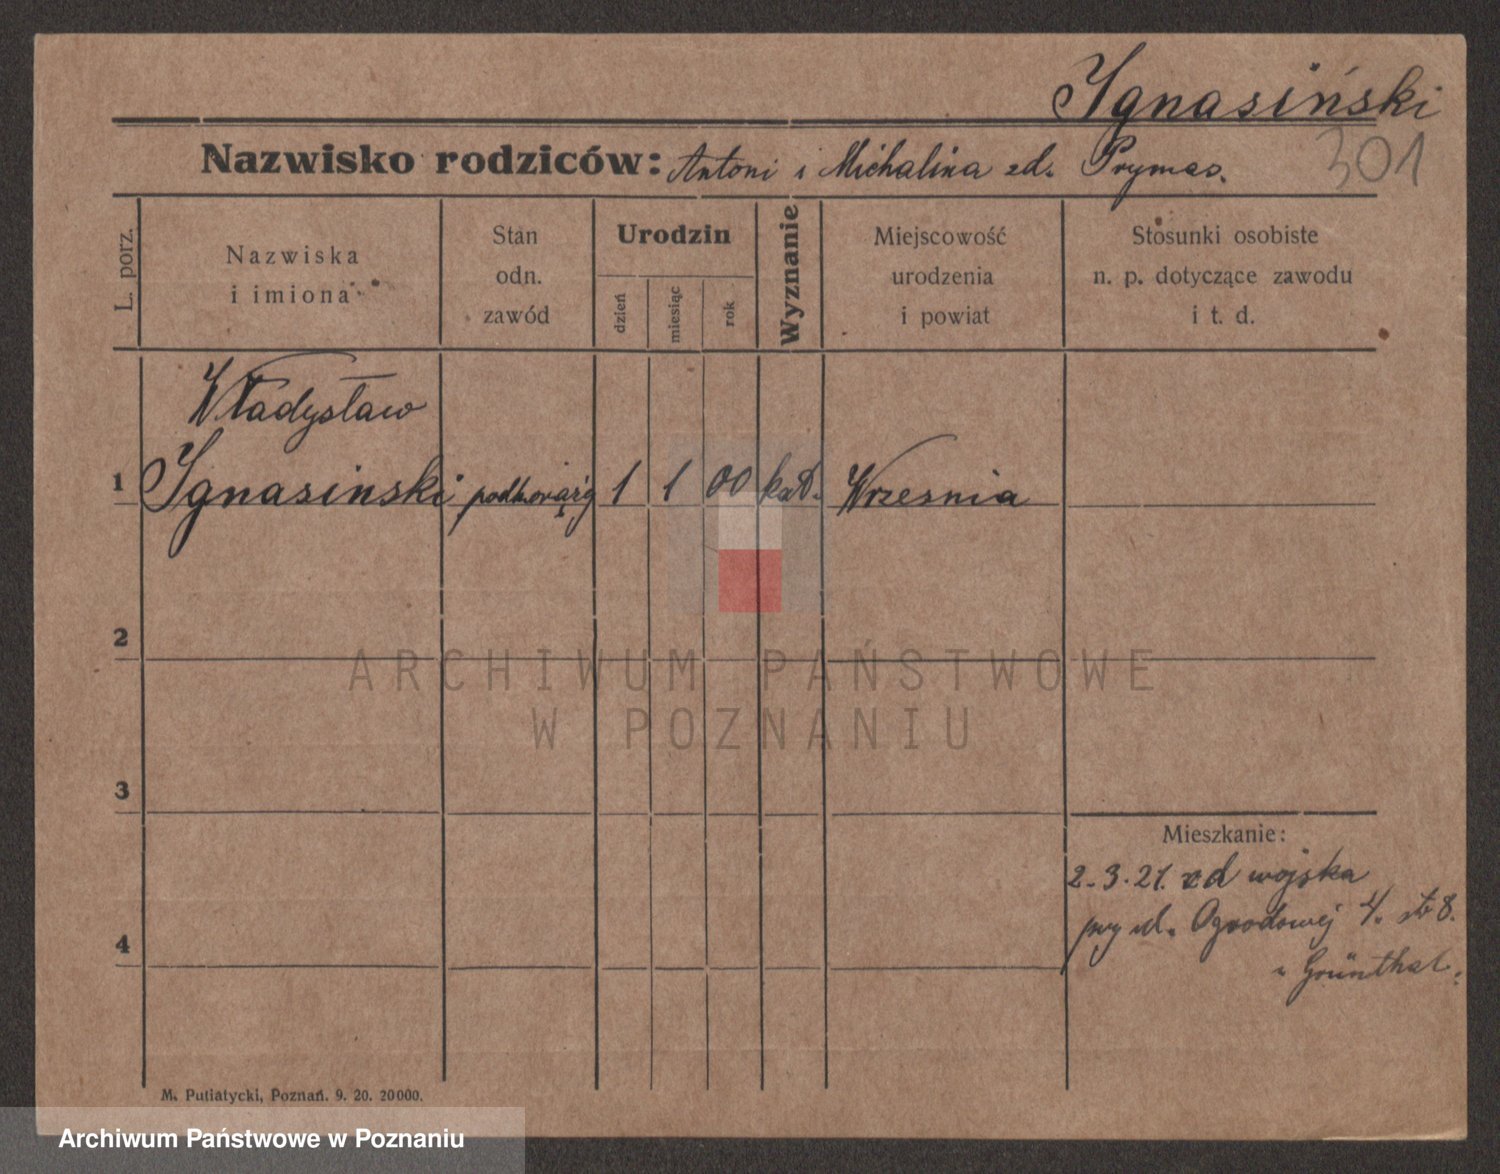 Ignasiński
301
Nazwisko rodziców: Antoni i Michalina zd. Prymas.
L. porz.
Nazwiska
i imiona
Stan
odn.
zawód
Urodzin
dzień
miesiąc
rok
Wyznanie
Miejscowość
urodzenia
i powiat
Stosunki osobiste
n. p. dotyczące zawodu
i t. d.
Władysław
1 Ignasinski 1 1 00 kat. Wrzesnia
2
3
4
Mieszkanie:
2.3.21. od wojska
przy ul. Ogrodowej 4. 8.
u Grünthal.
M. Putiatycki, Poznań. 9. 20. 20000.
ARCHIWUM PAŃSTWOWE
W POZNANIU
Archiwum Państwowe w Poznaniu